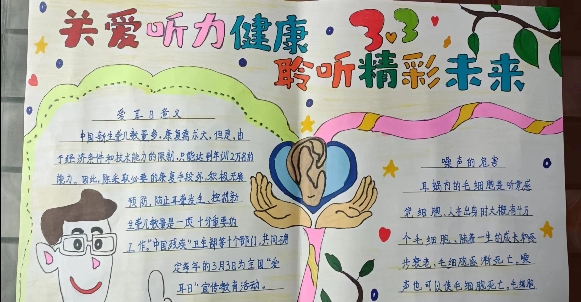 关爱听力健康 3.3
聆听精彩未来
爱耳日意义
中国新生聋儿数量多,康复需求大,但是,由
于经济条件和技术能力的限制,只能达到年训2万名的
能力。因此,除采取必要的康复手段外,积极开展
预防,防止耳聋发生,控制新
生聋儿数量是一项十分重要的
工作"中国残疾"卫生部等十个部门,共同确
定每年的3月3日为全国"爱
耳日"宣传教育活动。
噪声的危害
耳蜗内的毛细胞是听觉感
觉细胞,人出生时大概有4万
个毛细胞,随着一生的成长和逐
步衰老,毛细胞逐渐死亡,噪
声也可以使毛细胞死亡,毛细胞